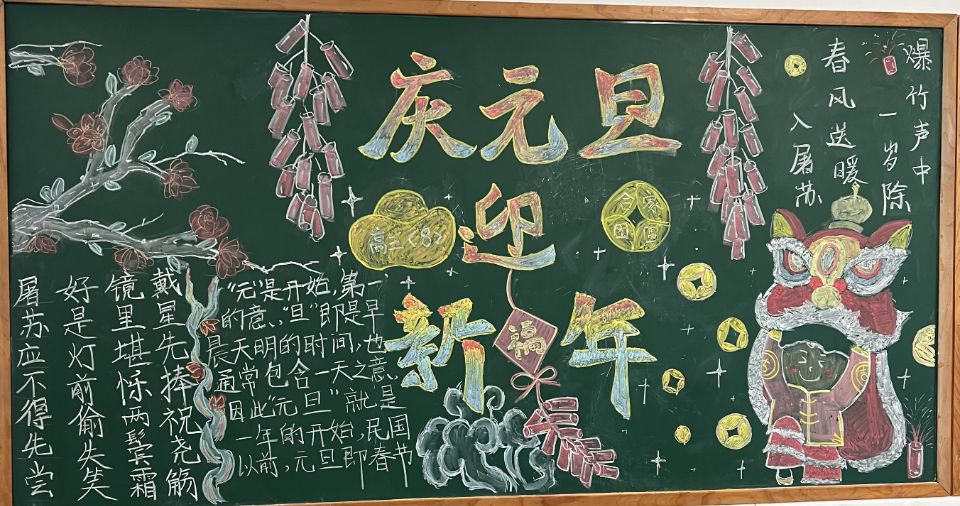 庆元旦
迎
新年
高三<8>
合家
福
爆竹声中
一岁除
春风送暖
入屠苏
戴星先捧祝尧觞
镜里堪惊两鬓霜
好是灯前偷失笑
屠苏应不得先尝
"元"是开始,第一
的意,"旦"即是早
晨天明的时间,也
通常包含一天之意,
因此"元旦"就是
一年的开始,民国
以前,元旦即春节